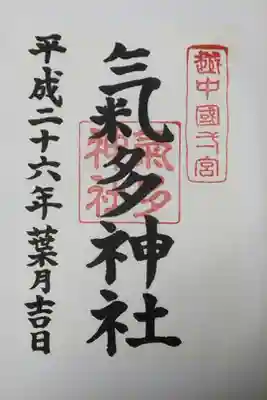 越中國弌宮
氣多神社
氣多
神社
平成二十六年葉月吉日